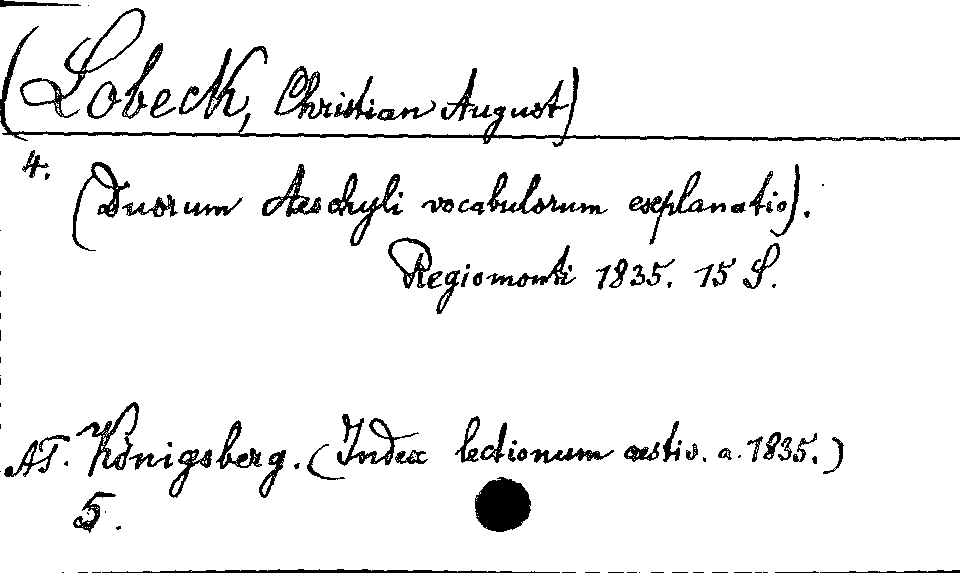 (Lobeck, Christian August)
4.
(Duorum Aeschyli vocabulorum explanatio).
Regiomonti 1835. 15 S.
AT. Königsberg. (Index lectionum aestiv. a. 1835.)
5.